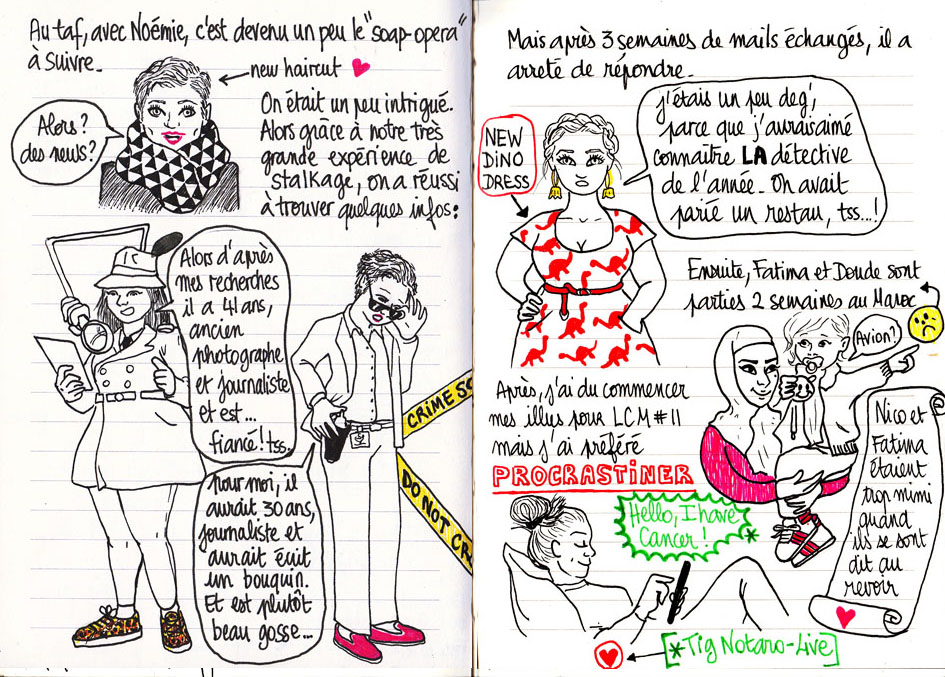 Au taf, avec Noémie, c'est devenu un peu le "soap-opera"
à suivre.
new haircut
Alors?
des news?
On était un peu intrigué.
Alors grâce à notre très
grande expérience de
stalkage, on a réussi
à trouver quelques infos:
Alors d'après
mes recherches
il a 41 ans,
ancien
photographe
et journaliste
et est...
fiancé! tss.
Pour moi, il
aurait 30 ans,
journaliste et
aurait écrit
un bouquin.
Et est plutôt
beau gosse...
CRIME SC
DO NOT CR
Mais après 3 semaines de mails échangés, il a
arreté de répondre.
NEW
DINO
DRESS
j'étais un peu deg',
parce que j'aurais aimé
connaître LA détective
de l'année. On avait
parié un restau, tss...!
Ensuite, Fatima et Doude sont
parties 2 semaines au Maroc
Avion?
Après, j'ai du commencer
mes illus pour LCM #11
mais j'ai préféré
PROCRASTINER
Hello, I have
Cancer! *
Nico et
Fatima
étaient
trop mimi
quand
ils se sont
dit au
revoir
[*Tig Notaro-Live]